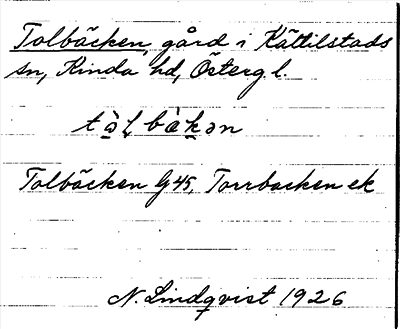 Tolbäcken, gård i Kättilstads
sn, Kinda hd, Östergl.
Tolbäcken G45, Torrbacken ek
N. Lindqvist 1926